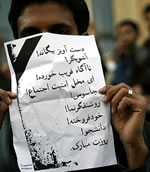 دست آویز بیگانه!
آشوبگر!
ناآگاه فریب خورده!
ای مخل امنیت اجتماع!
جاسوس!
روشنفکرنما!
خودفروخته!
دانشجو!
روزت مبارک.